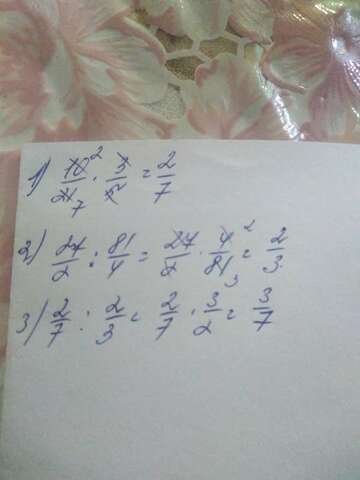 1) 10/21 · 3/5 = 2/7
2) 27/2 : 81/4 = 27/2 · 4/81 = 2/3
3) 2/7 : 2/3 = 2/7 · 3/2 = 3/7